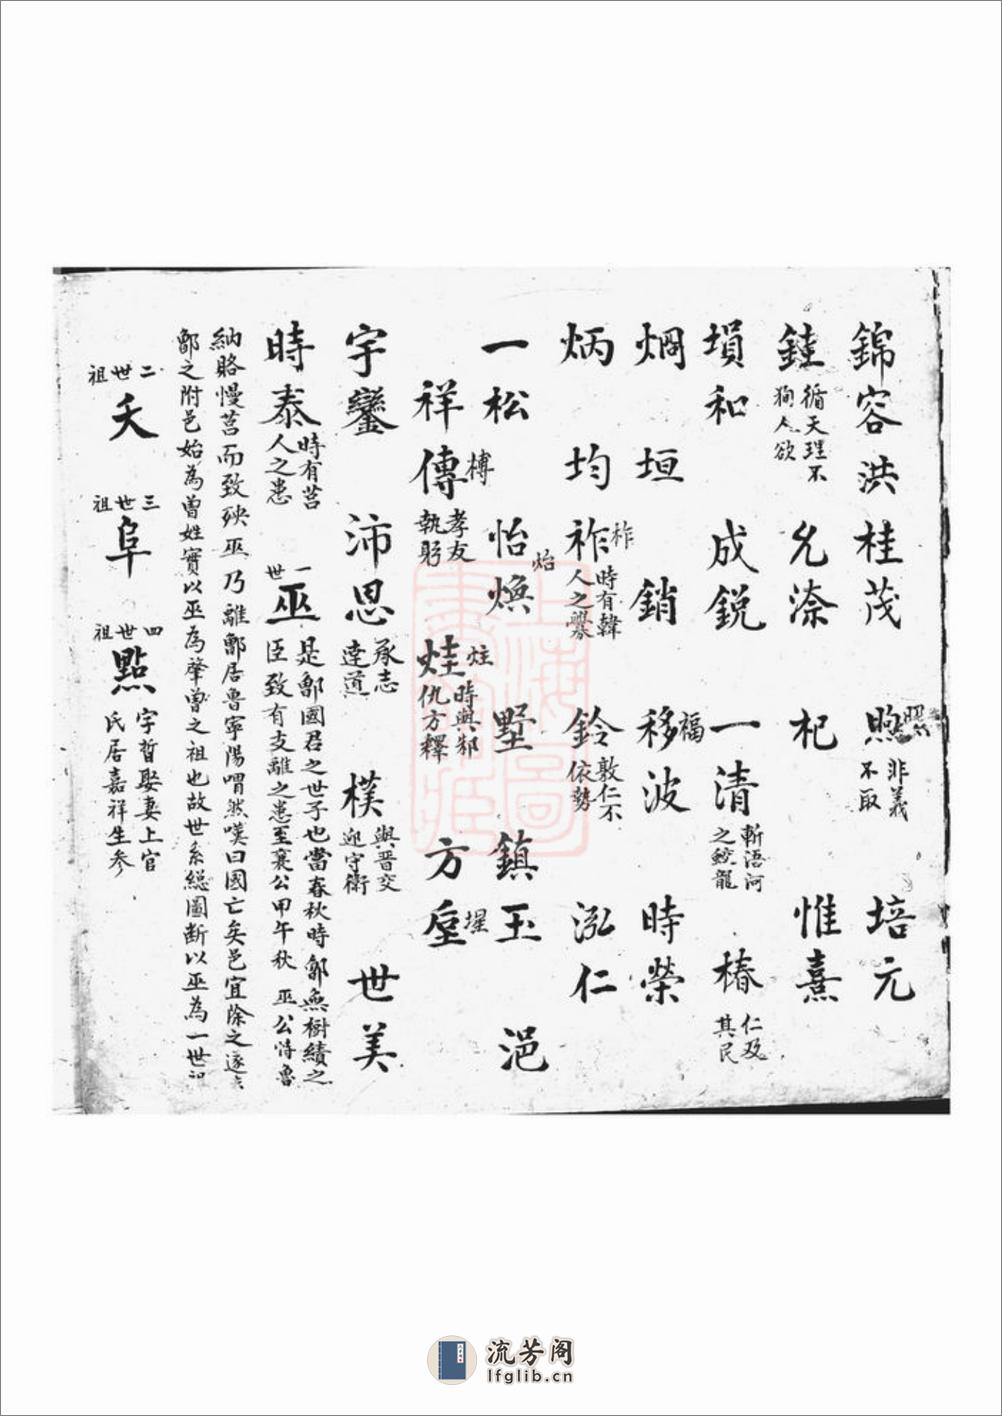 錦容洪 桂茂 煦 照 非義不取 培元
鍷 循天理不狥人欲 允漆 杞 惟熹
塤和 成銳 一清 斬浯河之蛟龍 椿 仁及其民
烱 垣 銷 移波 福 時榮
炳 均 祚 柞 時有韓人之釁 鈴 敦仁不依勢 泓仁
一松 怡煥 炲 墅 鎮玉 浥
祥傳 榑 孝友執躬 烓 炷 時與邾仇方釋 方垕 墀
宇鑾 沛思 承志達道 樸 與晋交迎守衛 世美
時泰 時有莒人之患 一世 巫 是鄫國君之世子也當春秋時鄫無樹績之臣致有支離之患至襄公甲午秋 巫公恃魯
納賂慢莒而致殃 巫乃離鄫居魯寧陽喟然嘆曰國亡矣邑宜除之遂
鄫之附邑始為曾姓實以巫為肇曾之祖也故世系總圖斷以巫為一世
二世祖 夭 三世祖 阜 四世祖 點 字晳娶妻上官氏居嘉祥生参
上海圖
流芳阁
lfglib.cn